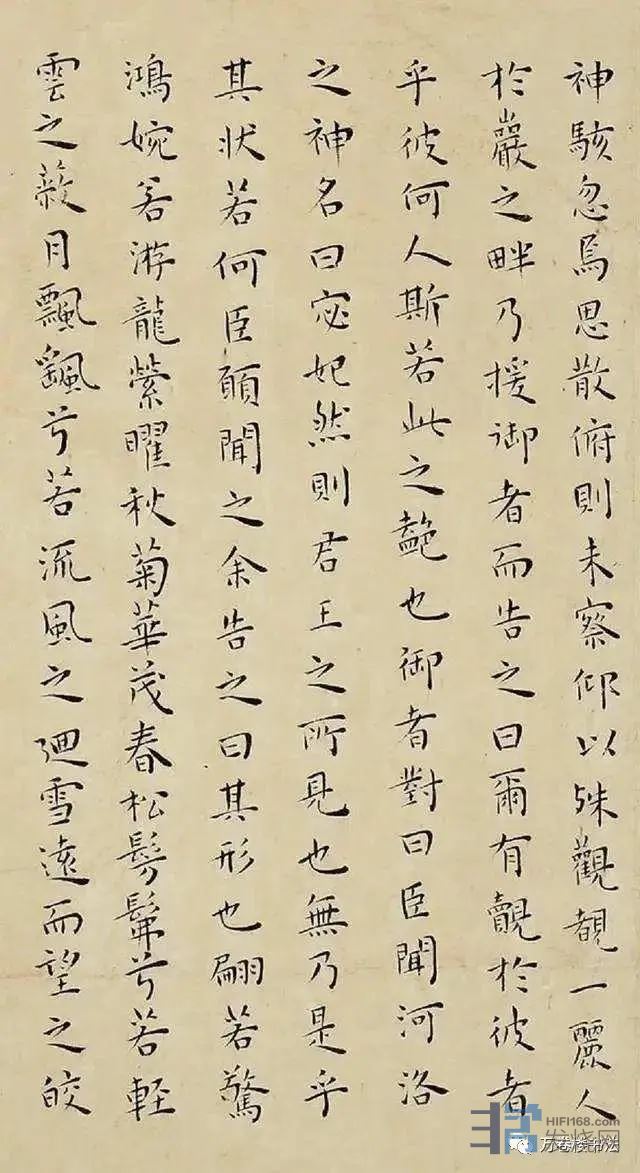 神駭忽焉思散俯則未察仰以殊觀覩一麗人
於巖之畔乃援御者而告之曰爾有覿於彼者
乎彼何人斯若此之艷也御者對曰臣聞河洛
之神名曰宓妃然則君王之所見也無乃是乎
其状若何臣願聞之余告之曰其形也翩若驚
鴻婉若游龍縈曜秋菊華茂春松髣髴兮若輕
雲之蔽月飄颻兮若流風之迴雪遠而望之皎
HIFI168.com
发烧网
万卷楼书法